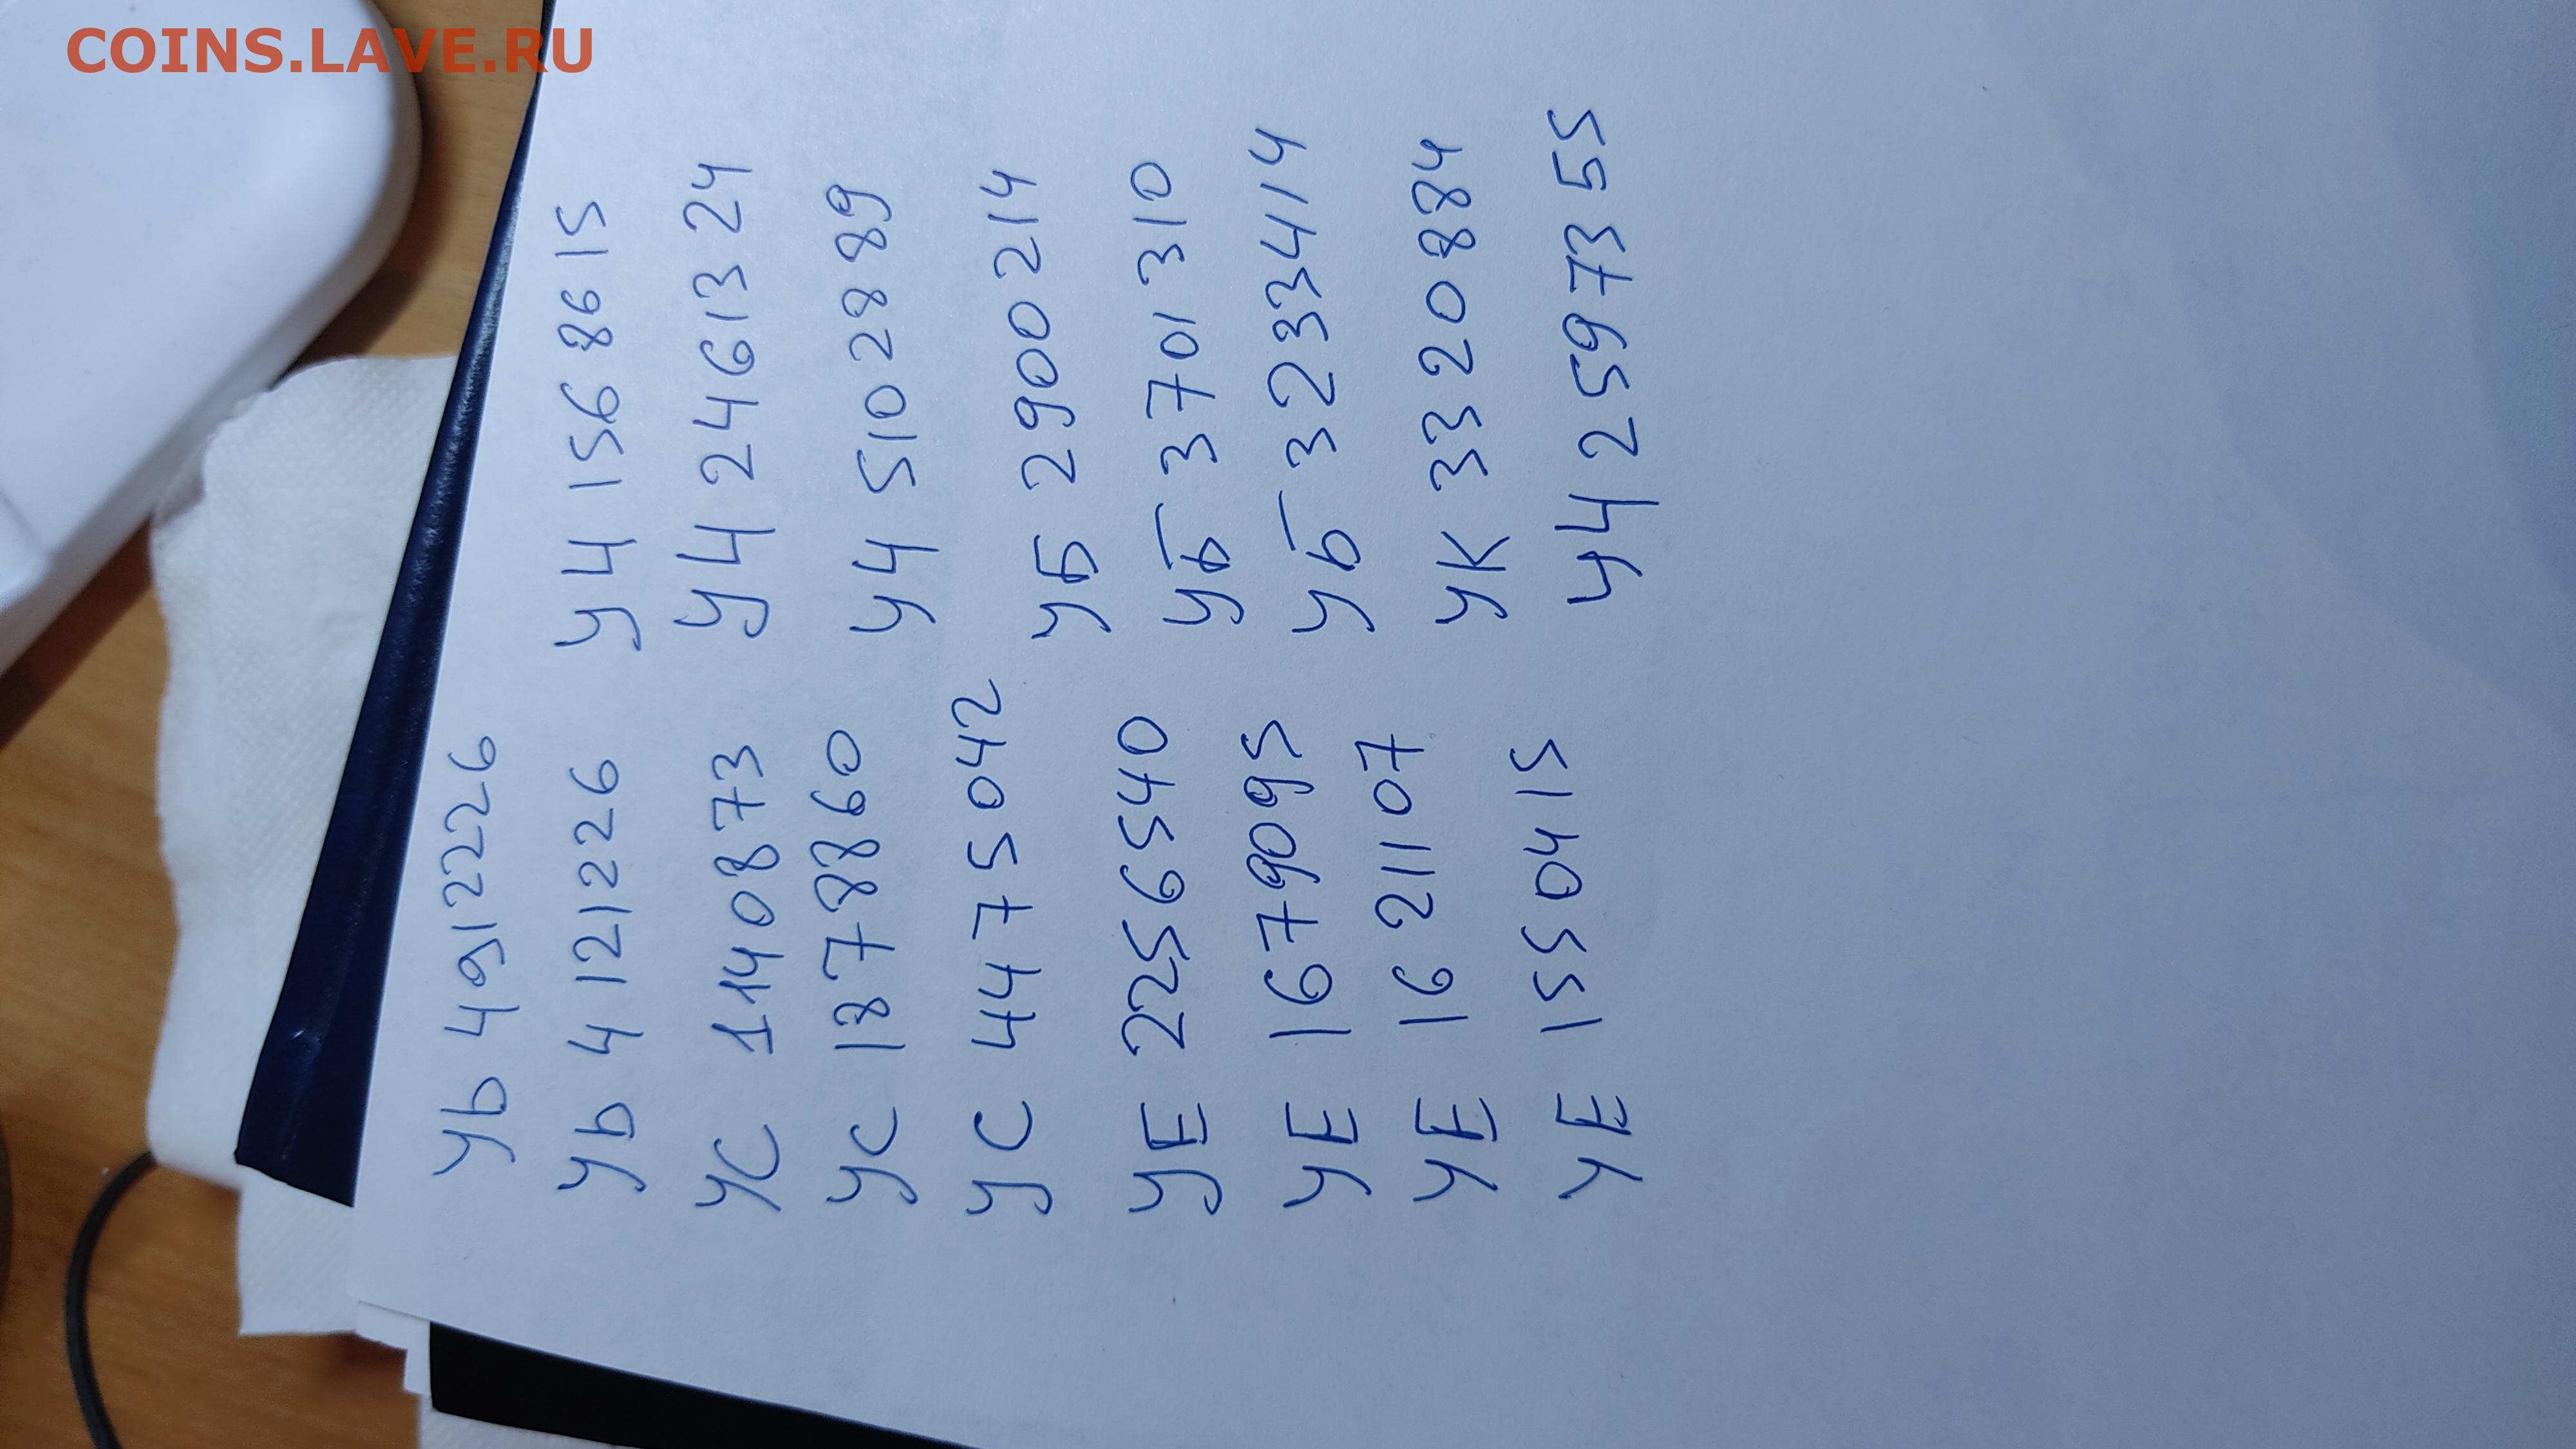 УЬ 4912226
УЬ 4121226 УЧ 1568615
УС 1140873 УЧ 2461324
УС 1878860 УЧ 5102889
УС 4475042 УБ 2900214
УЕ 2256540 УБ 3701310
УЕ 1679095 УБ 3233414
УЕ 1621107 УК 3320884
УЕ 1550415 УЧ 2597355
COINS.LAVE.RU